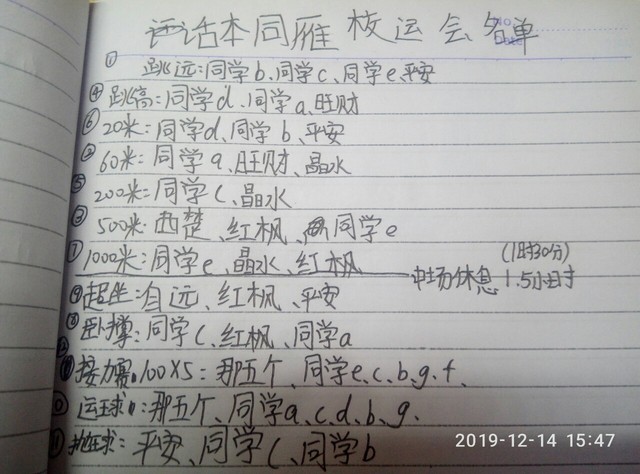 话本同雁校运会名单
① 跳远:同学b、同学c、同学e、平安
④ 跳高:同学d、同学a、旺财
⑥ 20米:同学d、同学b、平安
② 60米:同学a、旺财、晶水
⑤ 200米:同学c、晶水
③ 500米:西楚、红枫、同学e
⑦ 1000米:同学e、晶水、红枫 中场休息 1.5小时 (1时30分)
起坐:自远、红枫、平安
⑧ 卧撑:同学c、红枫、同学a
接力赛:100×5:那五个、同学e.c.b.g.f.
运球:那五个、同学a.c.d.b.g.
抛球:平安、同学c、同学b
2019-12-14 15:47